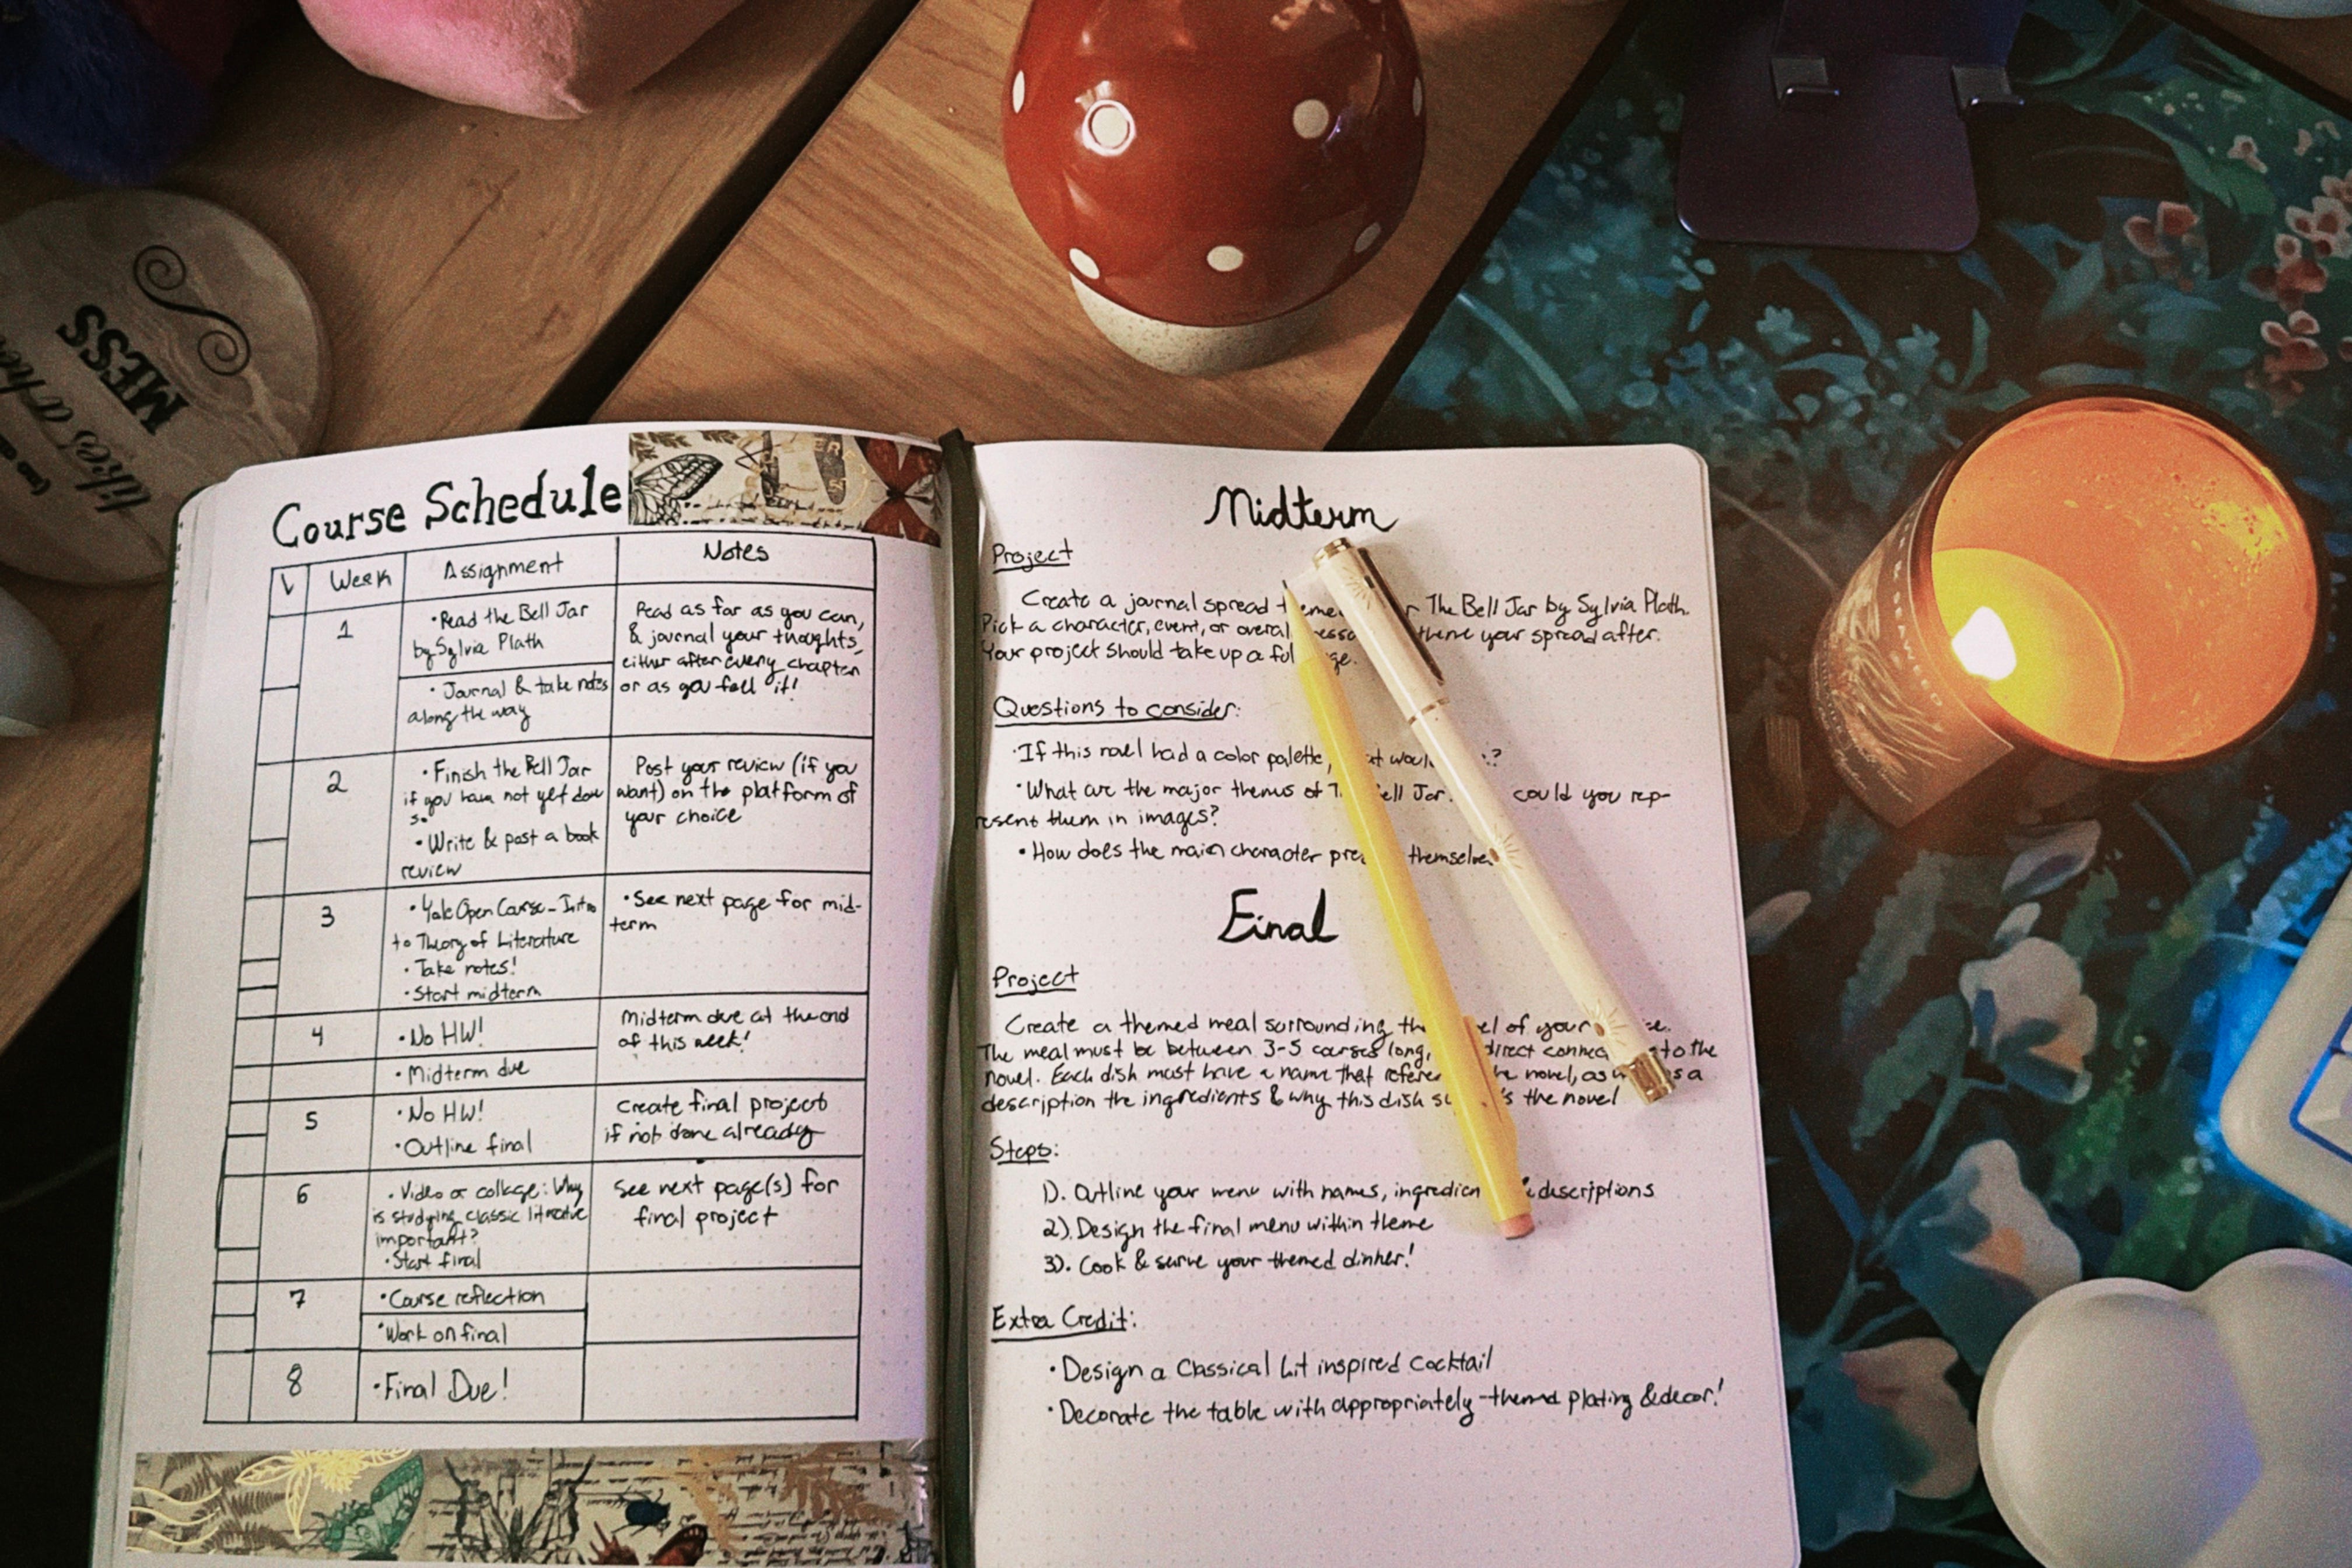 likes a
MESS
Course Schedule
Week
Assignment
Notes
1
•Read the Bell Jar
by Sylvia Plath
• Journal & take notes
along the way
Read as far as you can,
& journal your thoughts,
either after every chapter
or as you feel it!
2
•Finish the Bell Jar
if you have not yet done
so
•Write & post a book
review
Post your review (if you
want) on the platform of
your choice
3
•Yale Open Course - Intro
to Theory of Literature
•Take notes!
•Start midterm
•See next page for mid-
term
4
•No HW!
•Midterm due
Midterm due at the end
of this week!
5
•No HW!
•Outline final
Create final project
if not done already
6
•Video or collage: Why
is studying classic literature
important?
•Start final
See next page(s) for
final project
7
•Course reflection
•Work on final
8
•Final Due!
Midterm
Project
Create a journal spread The Bell Jar by Sylvia Plath.
Pick a character, event, or overall theme your spread after.
Your project should take up a
Questions to consider:
•If this novel had a color palette,
•What are the major themes of Bell Jar. could you rep-
resent them in images?
•How does the main character themselves
Final
Project
Create a themed meal surrounding of your
The meal must be between 3-5 courses long, direct to the
novel. Each dish must have a name that the novel, as a
description the ingredients & why this dish the novel
Steps:
1). Outline your menu with names, descriptions
2). Design the final menu within theme
3). Cook & serve your themed dinner!
Extra Credit:
•Design a Classical Lit inspired cocktail
•Decorate the table with appropriately-themed plating & decor!
SEAWEED